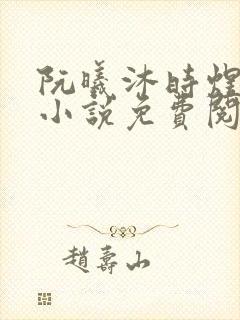 阮曦沐時煌
小說免費閱
趙壽山